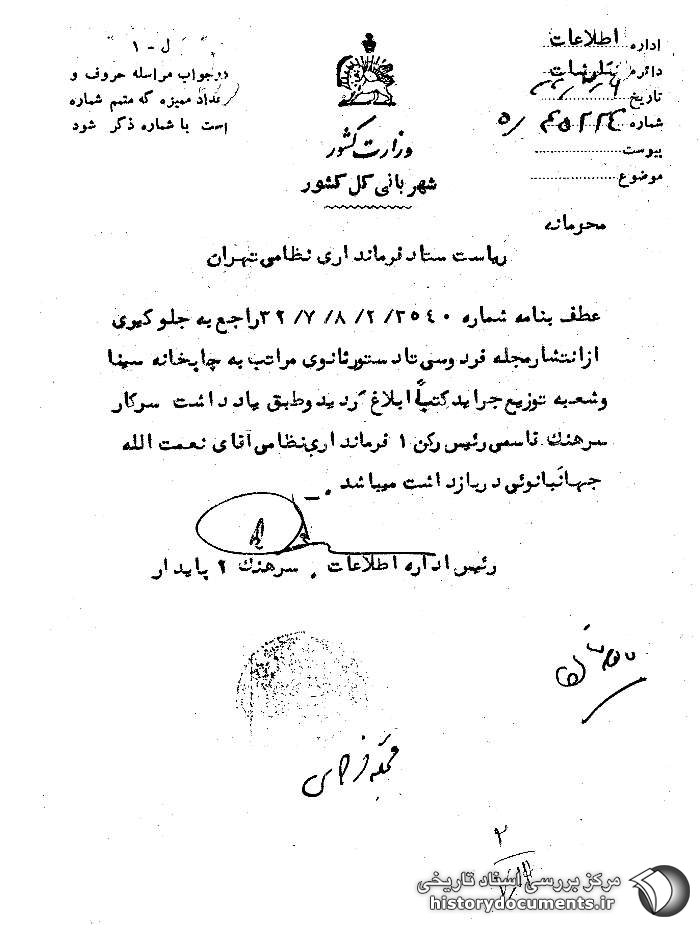 ل - ۱
درجواب مراسله حروف و
اعداد ممیزه که متمم شماره
است با شماره ذکر شود
وزارت کشور
شهربانی کل کشور
اداره اطلاعات
دائره نشریات
تاریخ
شماره ۴۵۲۲۴ / ۵
پیوست
موضوع
محرمانه
ریاست ستاد فرمانداری نظامی تهران
عطف بنامه شماره ۳۵۴۰ /۲ /۸ /۷ /۳۲ راجع به جلوگیری
از انتشار مجله فردوسی تا دستور ثانوی مراتب به چاپخانه سینا
و شعبه توزیع جراید کتباً ابلاغ گردید و طبق یادداشت سرکار
سرهنگ قاسمی رئیس رکن ۱ فرمانداری نظامی آقای نعمت الله
جهانبانوئی در بازداشت میباشد .
رئیس اداره اطلاعات . سرهنگ ۲ پایدار
مجله فردوسی
۲
مرکز بررسی اسناد تاریخی
historydocuments.ir